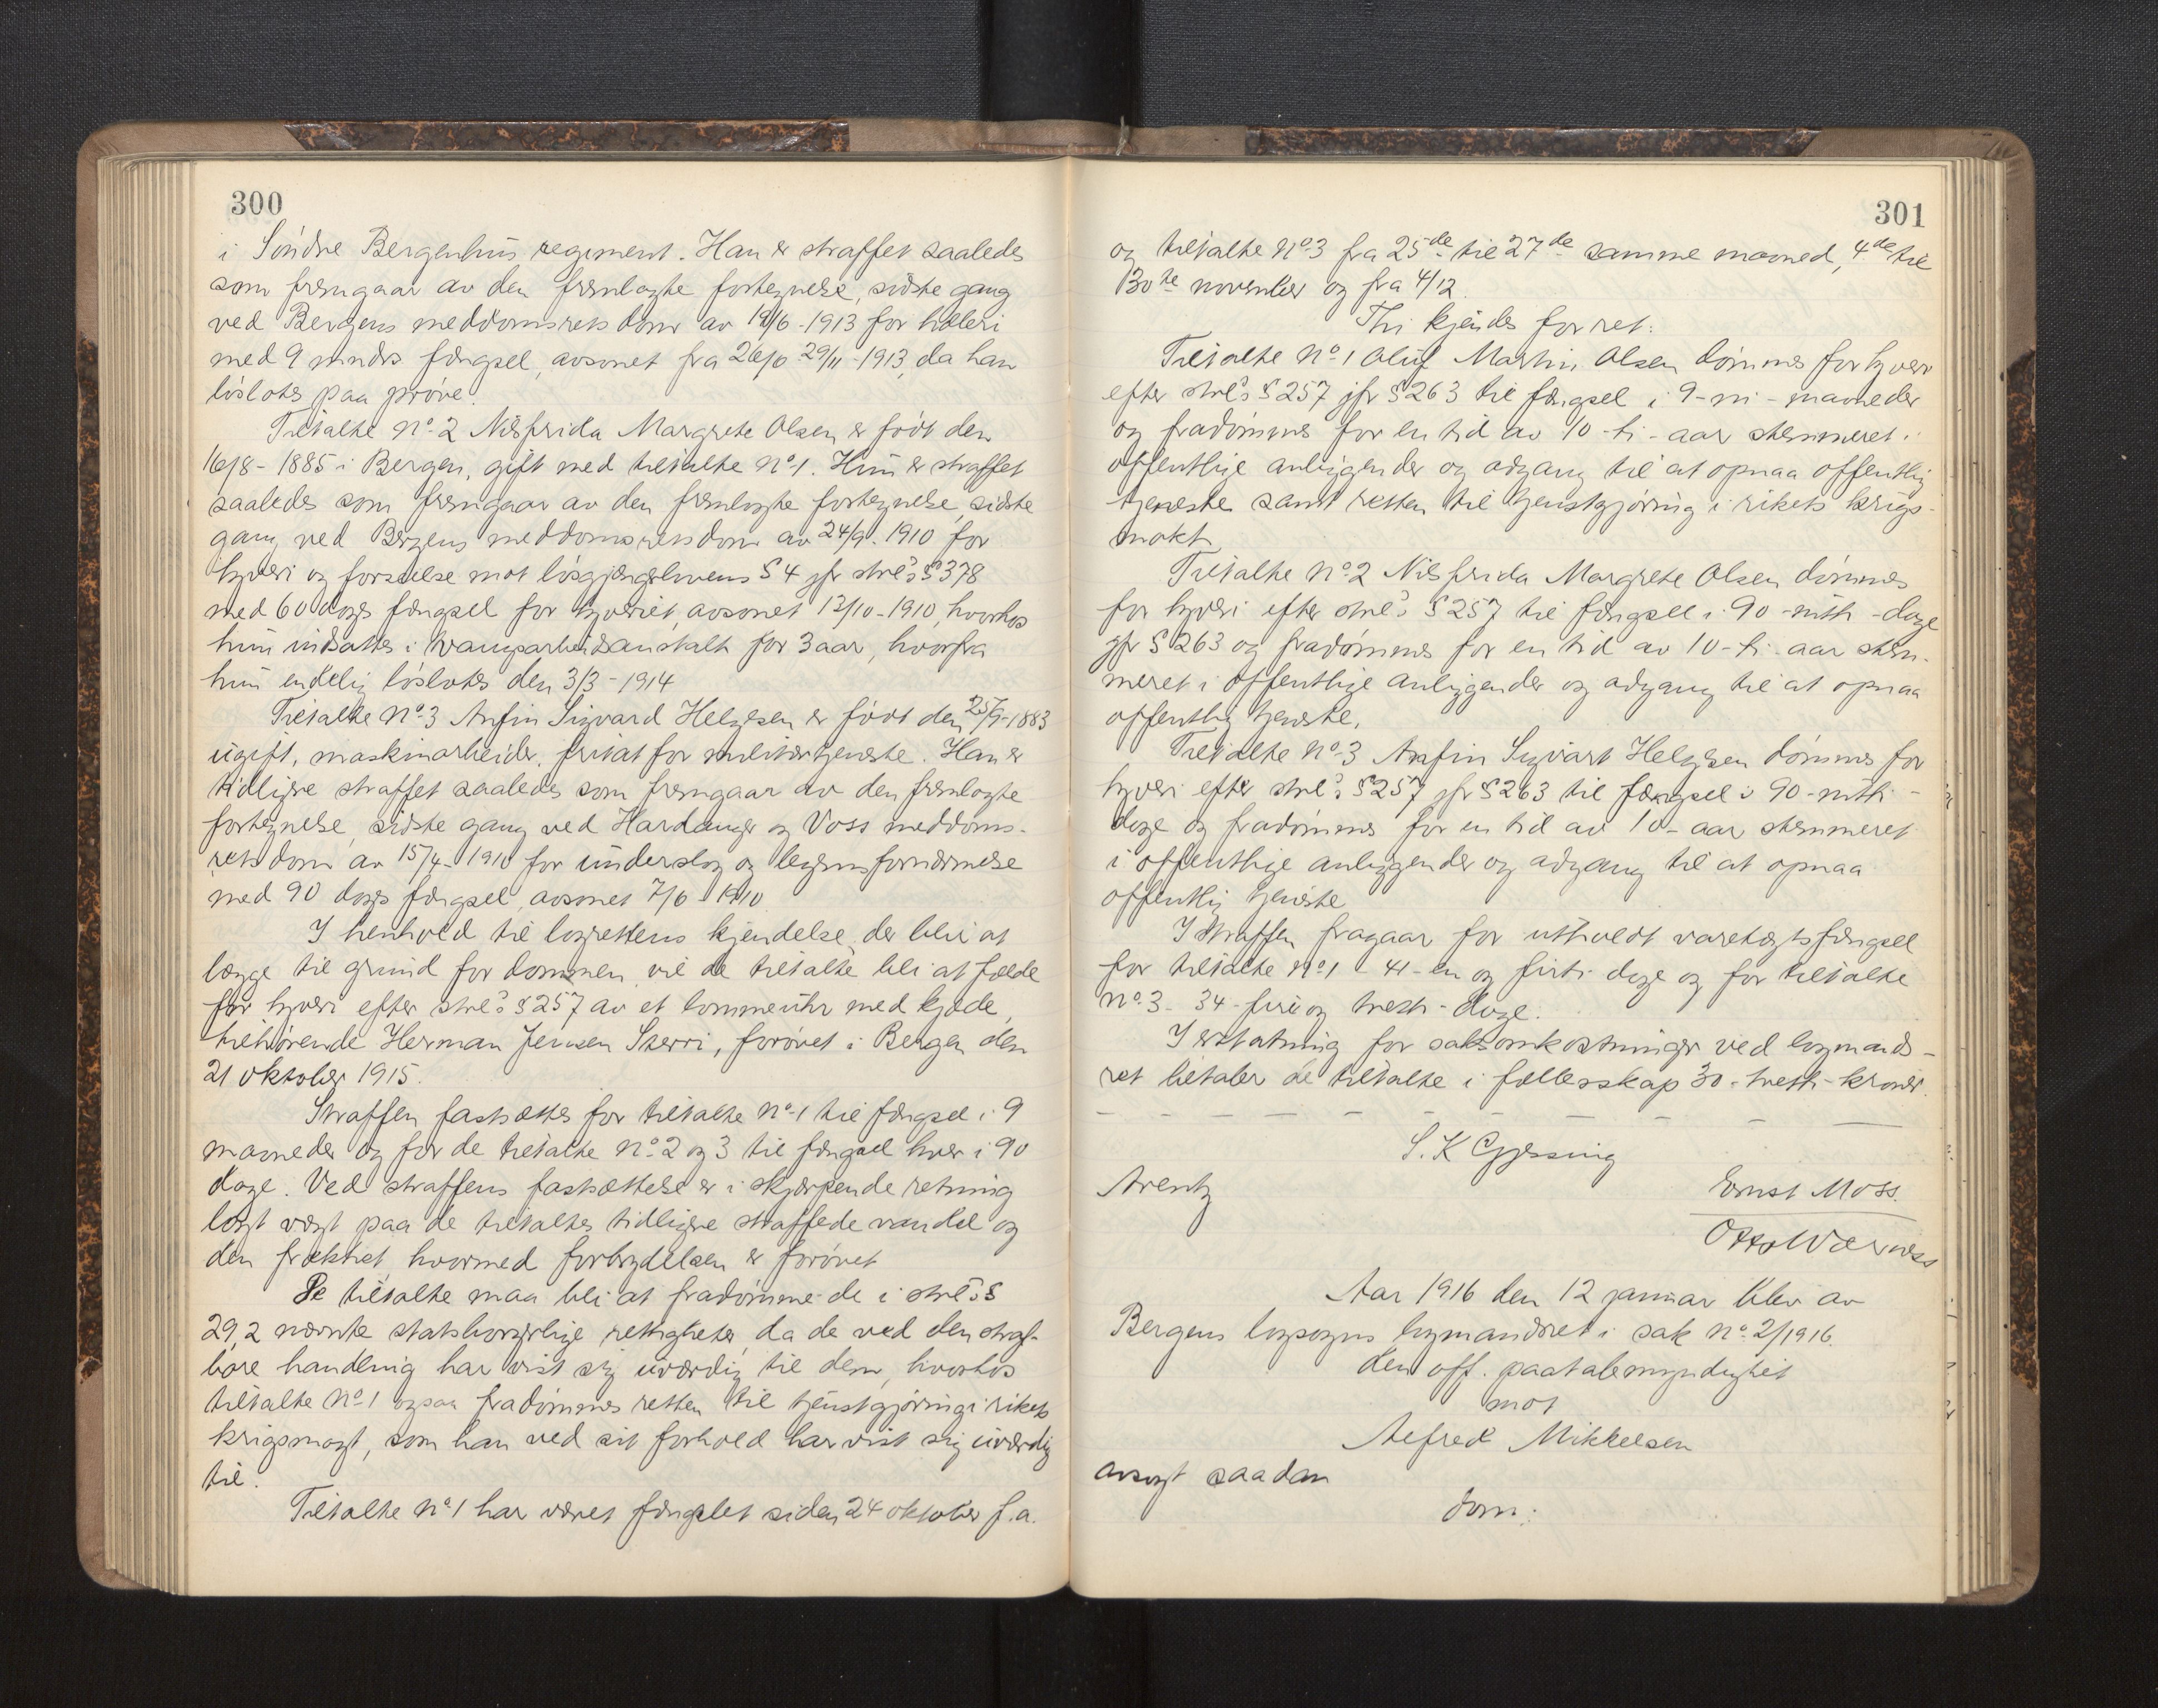 300
i Söndre Bergenhus regiment. Han er straffet saaledes
som fremgaar av den fremlagte fortegnelse, sidste gang
ved Bergens meddomsrets dom av 19/6 - 1913 for hæleri
med 9 mndrs fængsel, avsonet fra 26/6 - 29/11 - 1913, da han
löslotes paa pröve.
Tiltalte No 2 Nilsfrida Margrete Olsen er födt den
16/8 - 1885 i Bergen, gift med tiltalte No 1. Hun er straffet
saaledes som fremgaar av den fremlagte fortegnelse, sidste
gang ved Bergens meddomsrets dom av 24/9. 1910 for
tyveri og forseelse mot lösgjængerlovens § 4 jfr strl's § 378
med 60 dages fængsel for tyveriet, avsonet 13/10 - 1910, hvorhos
hun indsattes i tvangsarbeidsanstalt for 3 aar, hvorfra
hun endelig löslotes den 3/3 - 1914
Tiltalte No 3 Anfin Sigvard Helgesen er födt den 25/9 - 1883
ugift, maskinarbeider, fritat for militærtjeneste. Han er
tidligere straffet saaledes som fremgaar av den fremlagte
fortegnelse, sidste gang ved Hardanger og Voss meddoms-
rets dom av 15/4 - 1910 for underslag og legemsfornærmelse
med 90 dages fængsel, avsonet 7/6 - 1910
I henhold til lagrettens kjendelse, der blir at
lægge til grund for dommen, vil de tiltalte bli at fælde
for tyveri efter strl's § 257 av et lommeuhr med kjæde,
tilhörende Herman Jensen Skerri, forövet i Bergen den
21 oktober 1915.
Straffen fastsættes for tiltalte No 1 til fængsel i 9
maaneder og for de tiltalte No 2 og 3 til fængsel hver i 90
dage. Ved straffens fastsættelse er i skjærpende retning
lagt vægt paa de tiltaltes tidligere straffede vandel og
den frækhet hvormed forbrydelsen er forövet
De tiltalte maa bli at fradömme de i strl's §
29,2 nævnte statsborgerlige rettigheter, da de ved den straf-
bare handling har vist sig uværdig til dem, hvorhos
tiltalte No 1 ogsaa fradömmes retten til tjenstgjöring i rikets
krigsmagt, som han ved sit forhold har vist sig uværdig
til.
Tiltalte No 1 har været fængslet siden 24 oktober f.a.
301
og tiltalte No 3 fra 25de til 27de samme maaned, 4de til
30te november og fra 4/12.
Thi kjendes for ret:
Tiltalte No 1 Oluf Martin Olsen dömmes for tyveri
efter strl's § 257 jfr § 263 til fængsel i 9 - ni - maaneder
og fradömmes for en tid av 10 - ti - aar stemmeret i
offentlige anliggender og adgang til at opnaa offentlig
tjeneste samt retten til tjenstgjöring i rikets krigs-
makt
Tiltalte No 2 Nilsfrida Margrete Olsen dömmes
for tyveri efter strl's § 257 til fængsel i 90 - nitti - dage
jfr § 263 og fradömmes for en tid av 10 - ti - aar stem-
meret i offentlige anliggender og adgang til at opnaa
offentlig tjeneste.
Tiltalte No 3 Anfin Sigvart Helgesen dömmes for
tyveri efter strl's § 257 jfr § 263 til fængsel i 90 - nitti -
dage og fradömmes for en tid av 10 - aar stemmeret
i offentlige anliggender og adgang til at opnaa
offentlig tjeneste
I straffen fragaar for utholdt varetægtsfængsel
for tiltalte No 1 - 41 - en og firti dage og for tiltalte
No 3 - 34 - fire og tretti - dage.
I erstatning for saksomkostninger ved lagmands-
ret betaler de tiltalte i fællesskap 30 - tretti - kroner.
S. K Gjessing
Arentz
Ernst Moss.
Otto Værness
Aar 1916 den 12 januar blev av
Bergens lagsogns lagmandsret i sak No 2/1916.
den off. paatalemyndighet
mot
Alfred Mikkelsen
avsagt saadan
dom: